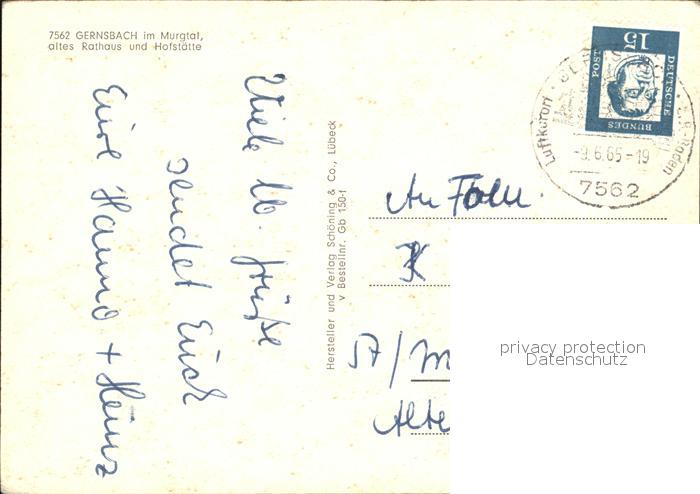 7562 GERNSBACH im Murgtal,
altes Rathaus und Hofstätte
Viele lb. Grüße
sendet Euch
Eure Hanno + Heinz
Hersteller und Verlag Schöning & Co., Lübeck
v Bestellnr. Gb 150-f
DEUTSCHE
BUNDES
POST
15
Luftkurort
-9.6.65-19
7562
An Fam.
57/M
Alte
privacy protection
Datenschutz